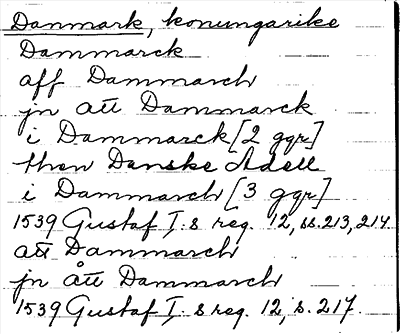 Danmark, konungarike
Dammarck
aff Dammarch
jn att Dammarck
i Dammarck [2 ggr]
then Danske Adell
i Dammarch [3 ggr]
1539 Gustaf I:s reg. 12, ss. 213, 214.
att Dammarch
jn ått Dammarch
1539 Gustaf I:s reg. 12, s. 217.